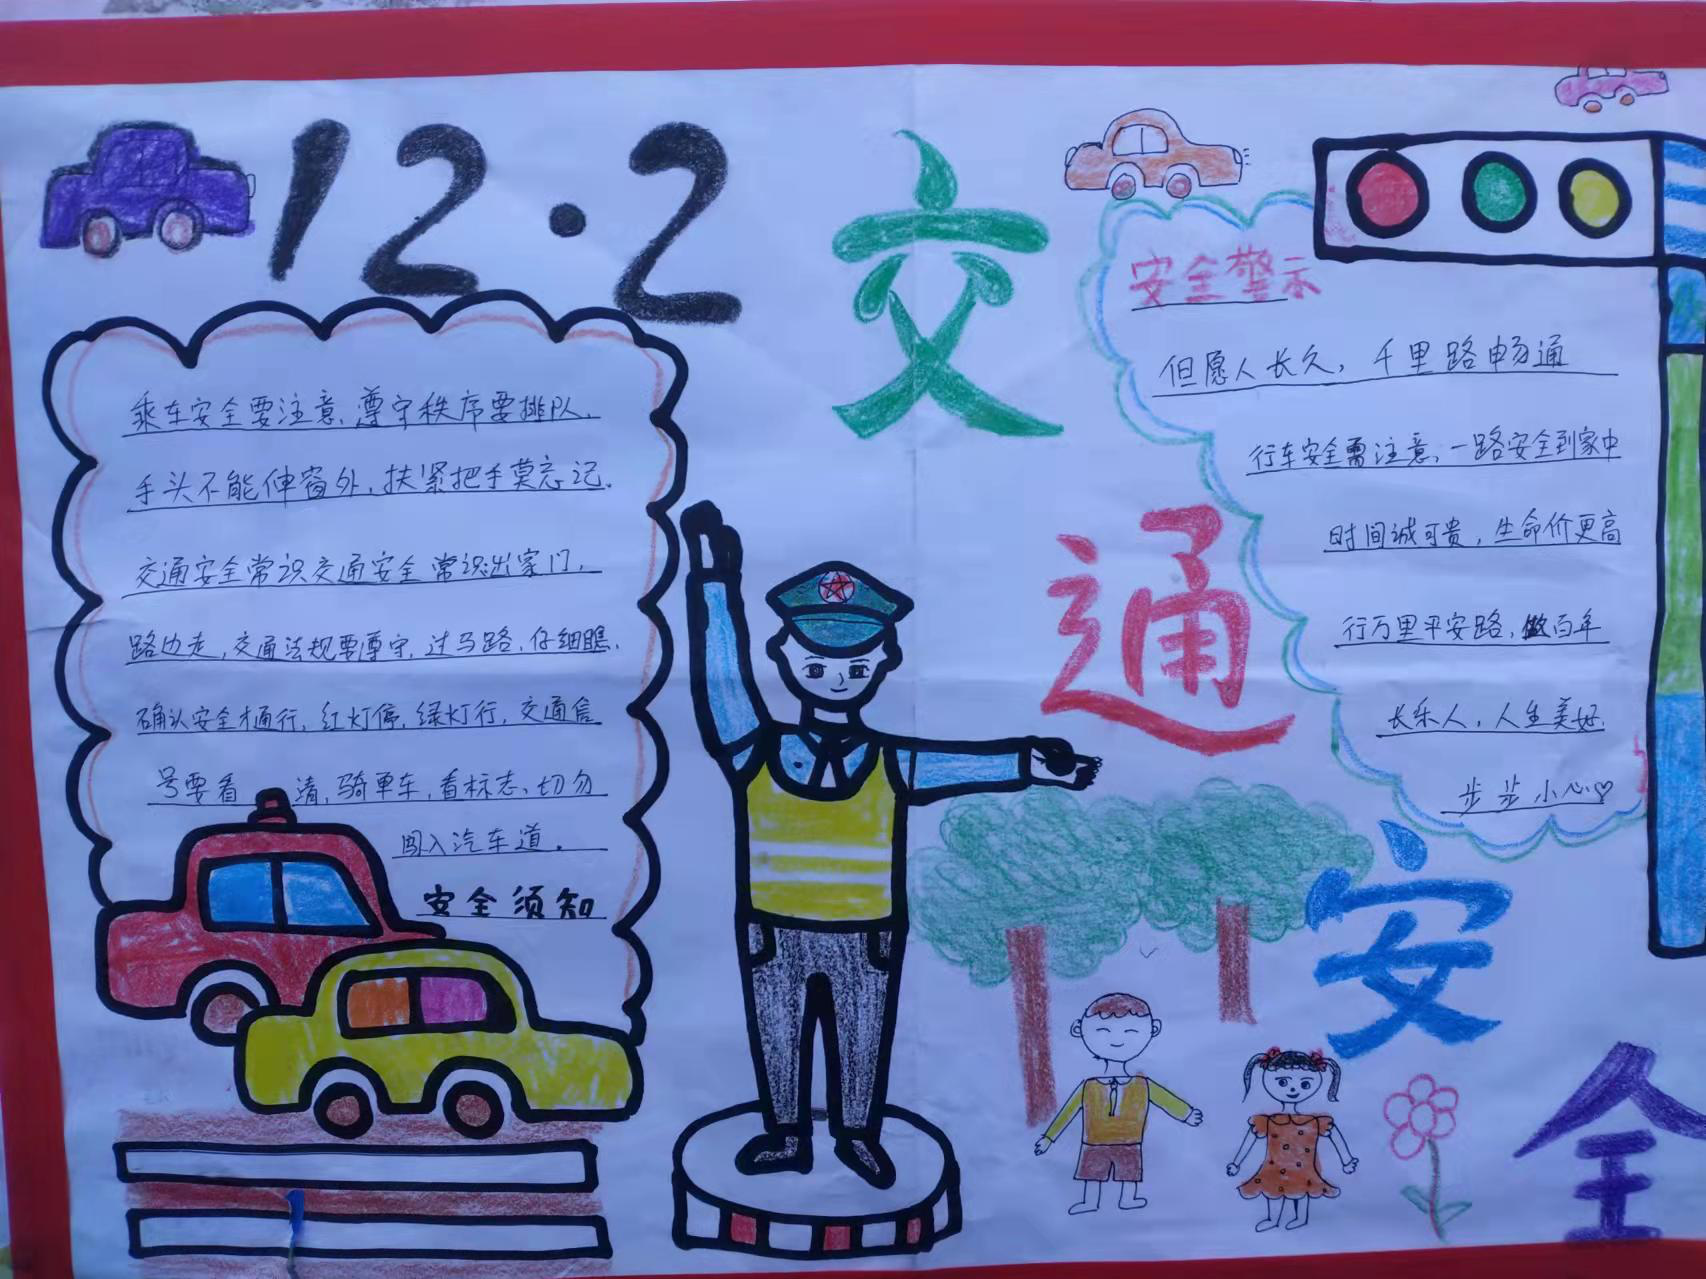 12·2
交通安全
乘车安全要注意、遵守秩序要排队、
手头不能伸窗外,扶紧把手莫忘记.
交通安全常识交通安全常识出家门,
路边走,交通法规要遵守,过马路,仔细瞧.
确认安全才通行,红灯停,绿灯行,交通信
号要看 清,骑单车,看标志、切勿
闯入汽车道.
安全须知
安全警示
但愿人长久,千里路畅通
行车安全需注意,一路安全到家中
时间诚可贵,生命价更高
行万里平安路,做百年
长乐人,人生美好
步步小心♡